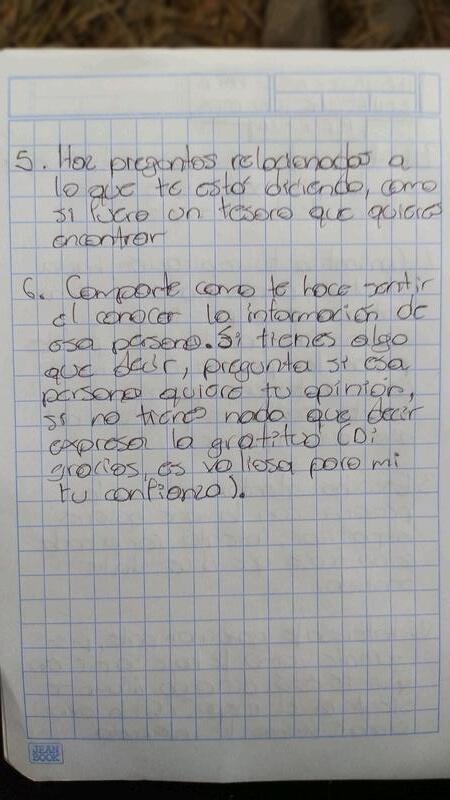 5. Haz preguntas relacionadas a
lo que te está diciendo, como
si fuera un tesoro que quieres
encontrar
6. Comparte como te hace sentir
el conocer la información de
esa persona. Si tienes algo
que decir, pregunta si esa
persona quiere tu opinión,
si no tiene nada que decir
expresa la gratitud (Di
gracias, es valiosa para mi
tu confianza).
JEAN
BOOK